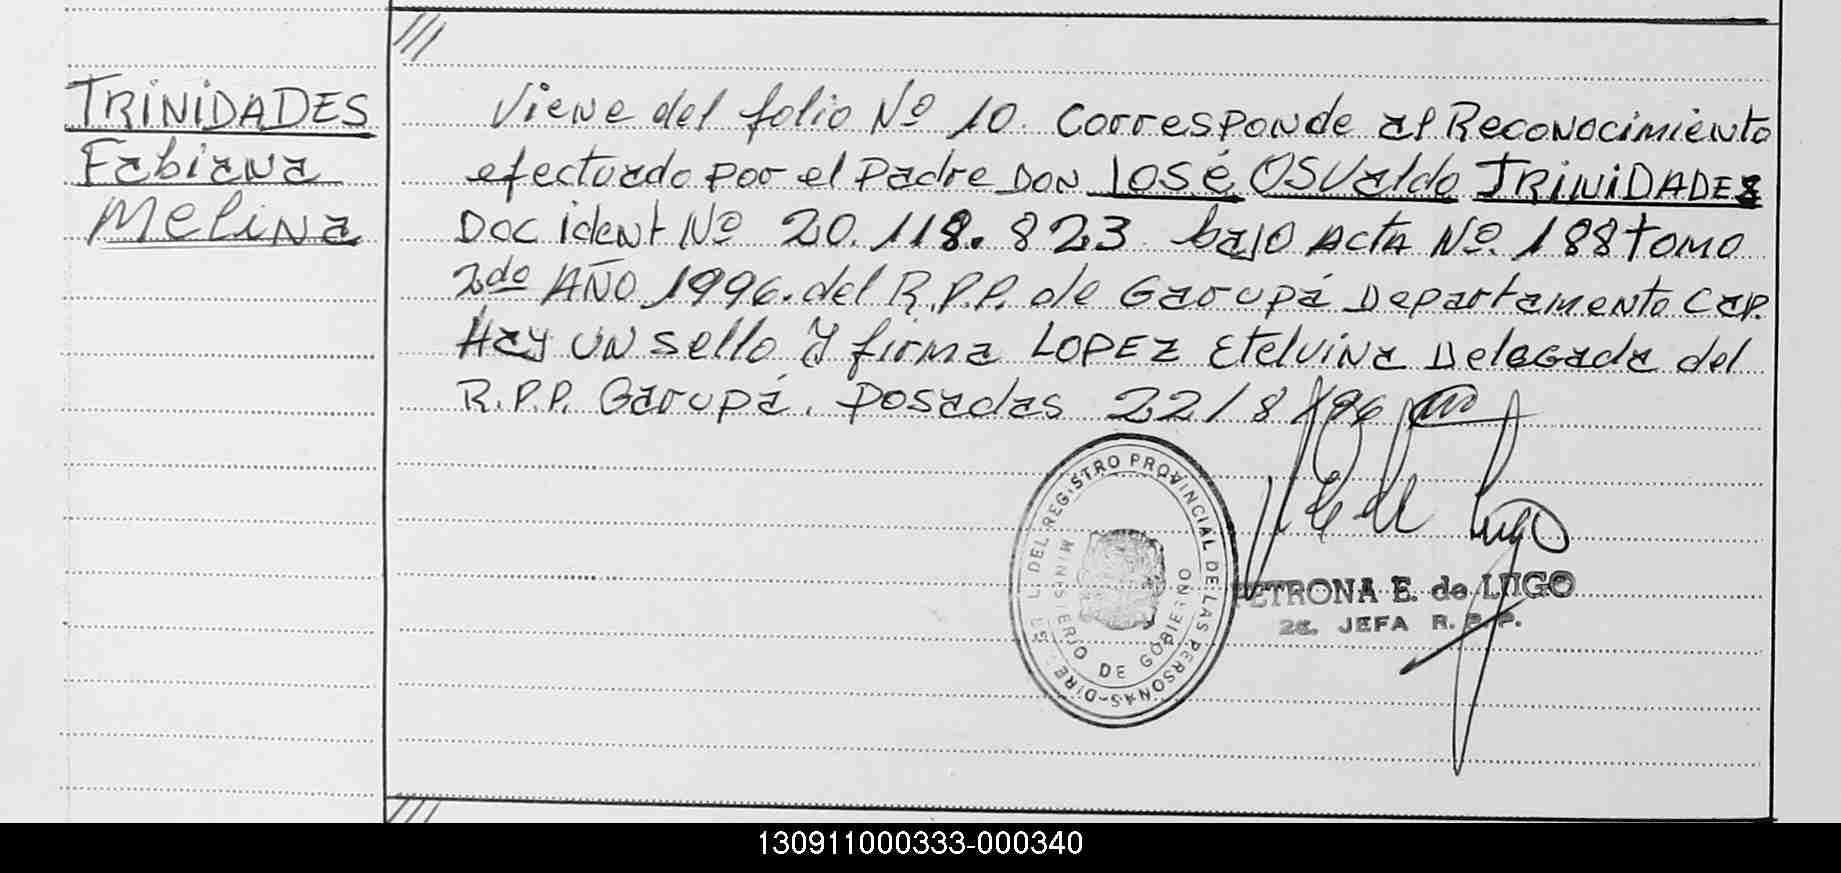 ///
TRINIDADES
Fabiana
Melina
Viene del folio Nº 10. Corresponde al Reconocimiento
efectuado por el Padre DON JOSÉ OSVALDO TRINIDADES
Doc ident Nº 20.118.823 bajo Acta Nº. 188 tomo
2do AÑO 1996. del R.P.P. de Garupá Departamento Cap.
Hay un sello y firma LOPEZ Etelvina Delegada del
R.P.P. Garupá. Posadas 22/8/96
DEL REGISTRO PROVINCIAL DE LAS PERSONAS-DIRE
MINISTERIO DE GOBIERNO
PETRONA E. de LUGO
2a. JEFA R. P. P.
///
130911000333-000340